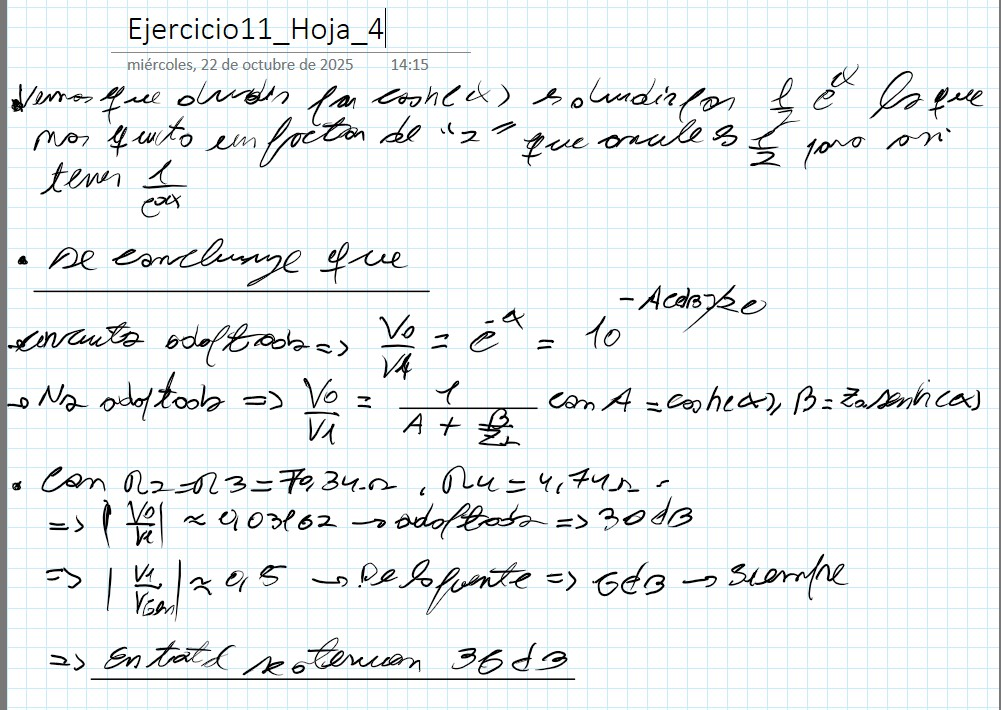 Ejercicio11_Hoja_4
miércoles, 22 de octubre de 2025 14:15
Vemos que dividir por cosh(α) es dividir por 1/2 e^α lo que
nos quita un factor de "2" que anula el 1/2 para así
tener 1/e^α
• Se concluye que
→ circuito adaptado => Vo/V1 = e^-α = 10^-A(dB)/20
→ No adaptado => Vo/V1 = 1/(A + B/ZL) con A = cosh(α), B = Zo senh(α)
• Con R2=R3=70,34Ω, R4=4,74Ω
=> |Vo/V1| ≈ 0,03162 → adaptado => 30dB
=> |V1/VGen| ≈ 0,5 → De la fuente => 6dB → Siempre
=> En total se atenuan 36dB